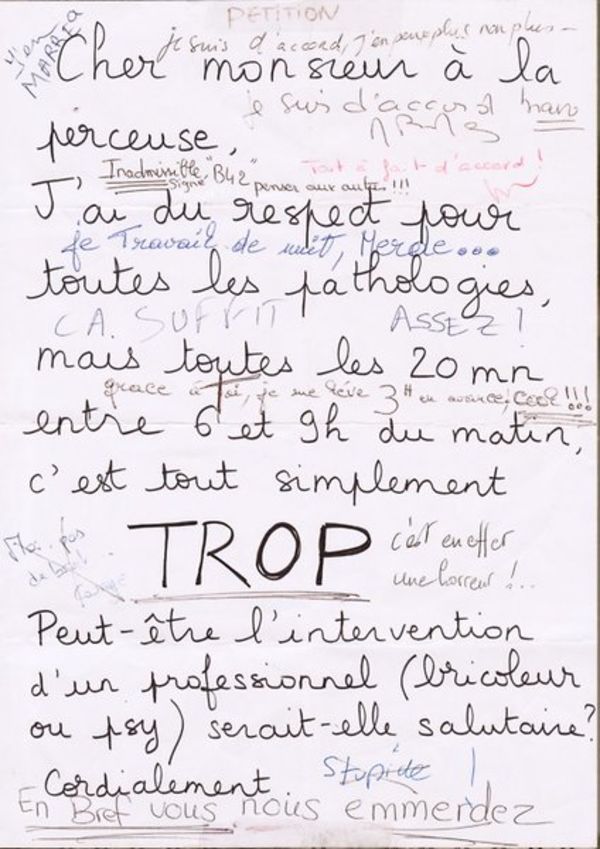 PETITION
J'en
MARRE
je suis d'accord, j'en peux plus non plus –
Cher monsieur à la
je suis d'accord
perceuse,
Inadmissible, "B42"
signé
penser aux autres !!!
Tout à fait d'accord !
J'ai du respect pour
je Travail de nuit, Merde...
toutes les pathologies,
CA SUFFIT ASSEZ !
mais toutes les 20 mn
grace à Toi, je me lève 3H en avance, Cool !!!
entre 6 et 9h du matin,
c'est tout simplement
TROP
c'est en effet
une horreur !..
Moi pas
Peut-être l'intervention
d'un professionnel (bricoleur
ou psy) serait-elle salutaire?
Stupide !
Cordialement
En Bref vous nous emmerdez